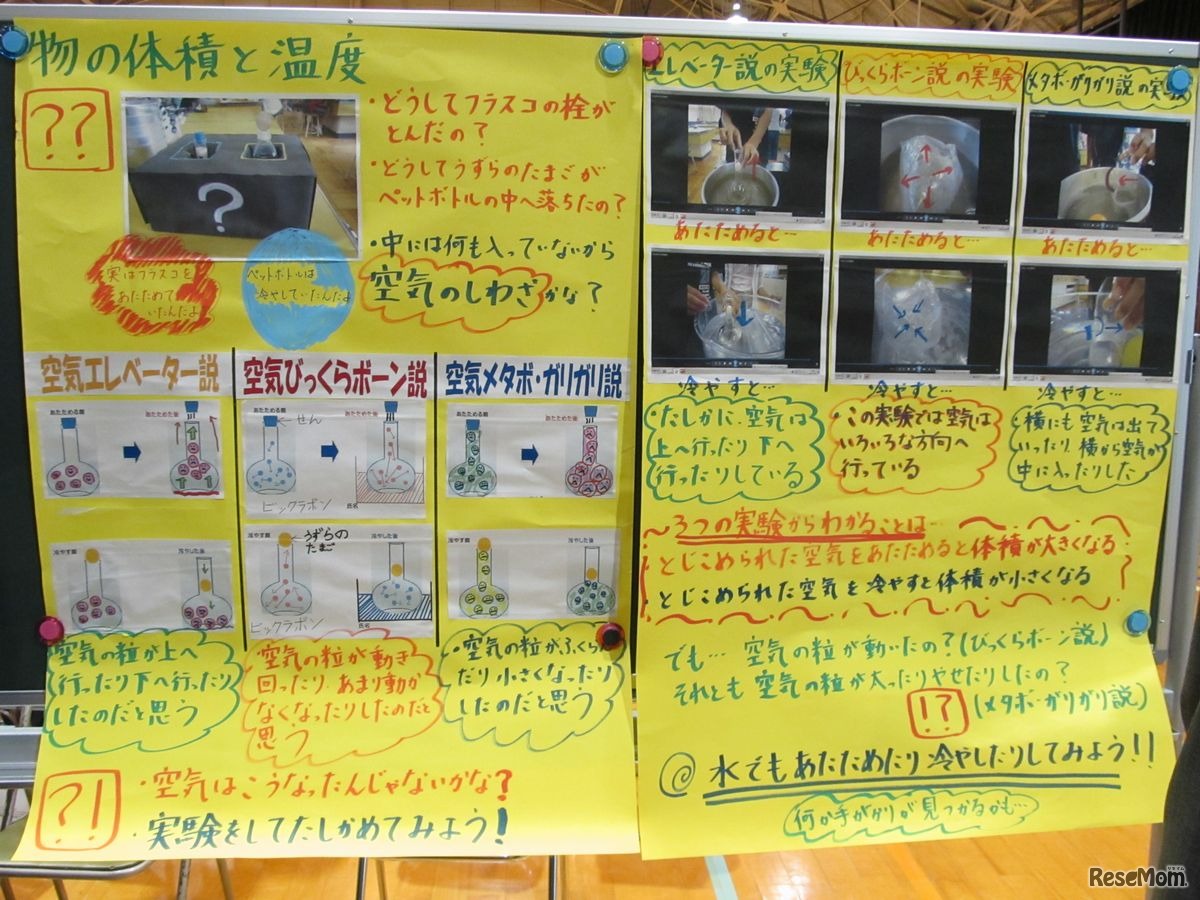 物の体積と温度
??
?
・どうしてフラスコの栓が
とんだの?
・どうしてうずらのたまごが
ペットボトルの中へ落ちたの?
・中には何も入っていないから
空気のしわざかな?
実はフラスコを
あたためて
いたんだよ
ペットボトルは
冷やしていたんだよ
空気エレベーター説
空気びっくらボーン説
空気メタボ・ガリガリ説
あたためる前
あたためた後
あたためる前
せん
あたためた後
ビックラボン
氏名
あたためる前
あたためた後
冷やす前
冷やした後
冷やす前
うずらの
たまご
冷やした後
ビックラボン
氏名
冷やす前
冷やした後
空気の粒が上へ
行ったり下へ行ったり
したのだと思う
空気の粒が動き
回ったり、あまり動か
なくなったりしたのだと
思う
・空気の粒がふくらん
だり小さくなったり
したのだと思う
?!
・空気はこうなったんじゃないかな?
・実験をしてたしかめてみよう!
エレベーター説の実験
びっくらボーン説の実験
メタボ・ガリガリ説の実験
あたためると…
あたためると…
あたためると…
冷やすと…
冷やすと…
冷やすと…
・たしかに、空気は
上へ行ったり下へ
行ったりしている
・この実験では空気は
いろいろな方向へ
行っている
・横にも空気は出て
いったり、横から空気が
中に入ったりした
〜3つの実験からわかることは…
とじこめられた空気をあたためると体積が大きくなる
とじこめられた空気を冷やすと体積が小さくなる
でも… 空気の粒が動いたの?(びっくらボーン説)
それとも空気の粒が太ったりやせたりしたの?
!?
(メタボ・がりがり説)
水でもあたためたり冷やしたりしてみよう!!
何か手がかりが見つかるかも…
ReseMom